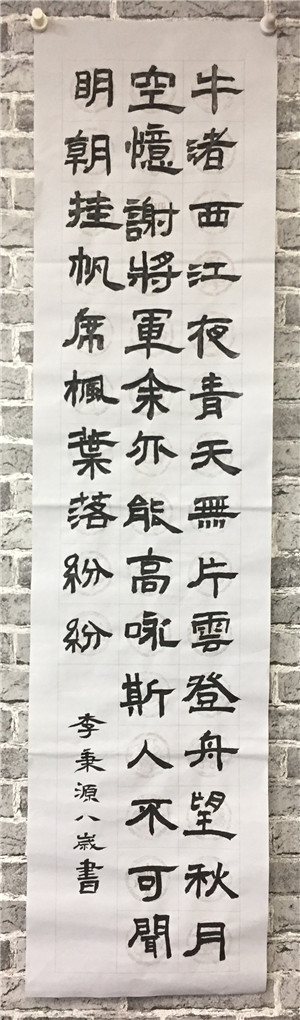 牛渚西江夜青天無片雲登舟望秋月
空憶謝將軍余亦能高咏斯人不可聞
明朝挂帆席楓葉落紛紛
李秉源八歲書